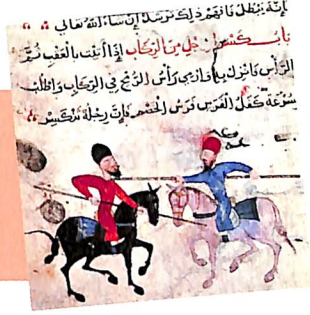 بانه يبطل فافهم ذلك ترشد ان شاء الله تعالى
باب كسر رجل من الركاب اذا اتيت بالعقب ثم
الرأس وانزل رأس الرمح في الركاب واطلب
بسرعة كفل الفرس فرس الخصم فان رجله تنكسر